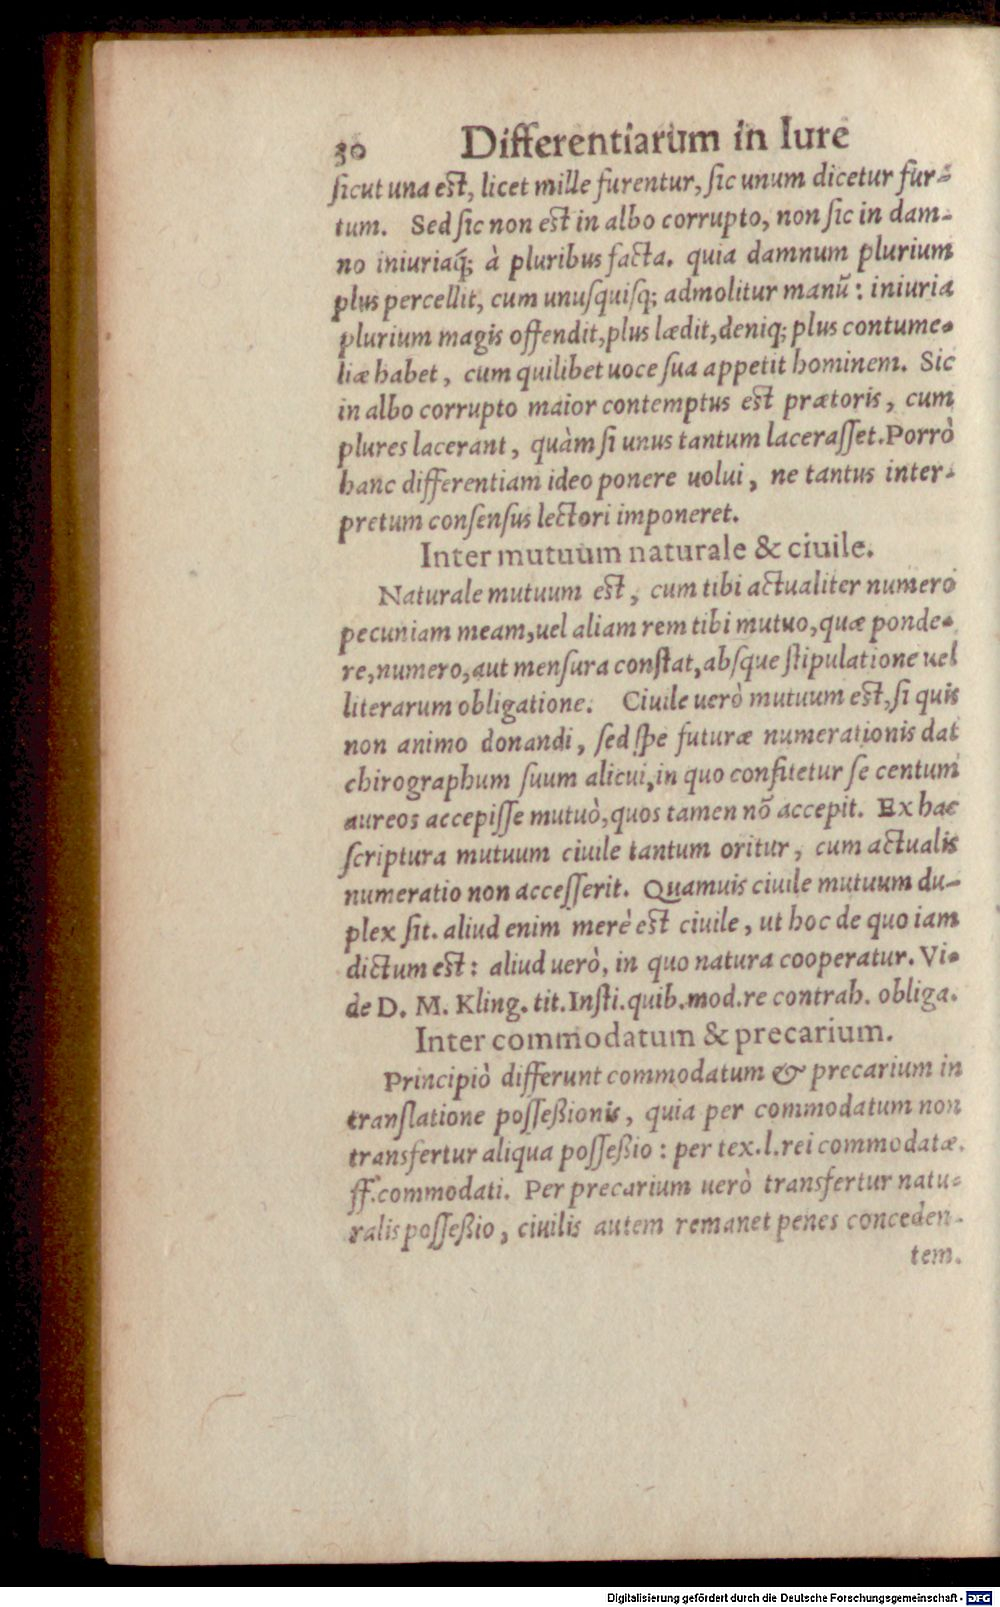 30 Differentiarum in Iure
ſicut una eſt, licet mille furentur, ſic unum dicetur fur-
tum. Sed ſic non eſt in albo corrupto, non ſic in dam-
no iniuriaq́; à pluribus facta. quia damnum plurium
plus percellit, cum unuſquiſq; admolitur manũ: iniuria
plurium magis offendit, plus lædit, deniq; plus contume-
liæ habet, cum quilibet uoce ſua appetit hominem. Sic
in albo corrupto maior contemptus eſt prætoris, cum
plures lacerant, quàm ſi unus tantum laceraſſet. Porrò
hanc differentiam ideo ponere uolui, ne tantus inter-
pretum conſenſus lectori imponeret.
Inter mutuum naturale & ciuile.
Naturale mutuum eſt, cum tibi actualiter numero
pecuniam meam, uel aliam rem tibi mutuo, quæ ponde-
re, numero, aut menſura conſtat, abſque ſtipulatione uel
literarum obligatione. Ciuile uerò mutuum eſt, ſi quis
non animo donandi, ſed ſpe futuræ numerationis dat
chirographum ſuum alicui, in quo confitetur ſe centum
aureos accepiſſe mutuò, quos tamen nõ accepit. Ex hac
ſcriptura mutuum ciuile tantum oritur, cum actualis
numeratio non acceſſerit. Quamuis ciuile mutuum du-
plex ſit. aliud enim merè eſt ciuile, ut hoc de quo iam
dictum eſt: aliud uerò, in quo natura cooperatur. Vi-
de D. M. Kling. tit. Inſti. quib. mod. re contrah. obliga.
Inter commodatum & precarium.
Principiò differunt commodatum & precarium in
tranſlatione poſſeßionis, quia per commodatum non
transfertur aliqua poſſeßio: per tex. l. rei commodatæ.
ff. commodati. Per precarium uerò transfertur natu-
ralis poſſeßio, ciuilis autem remanet penes conceden-
tem.
Digitalisierung gefördert durch die Deutsche Forschungsgemeinschaft - DFG